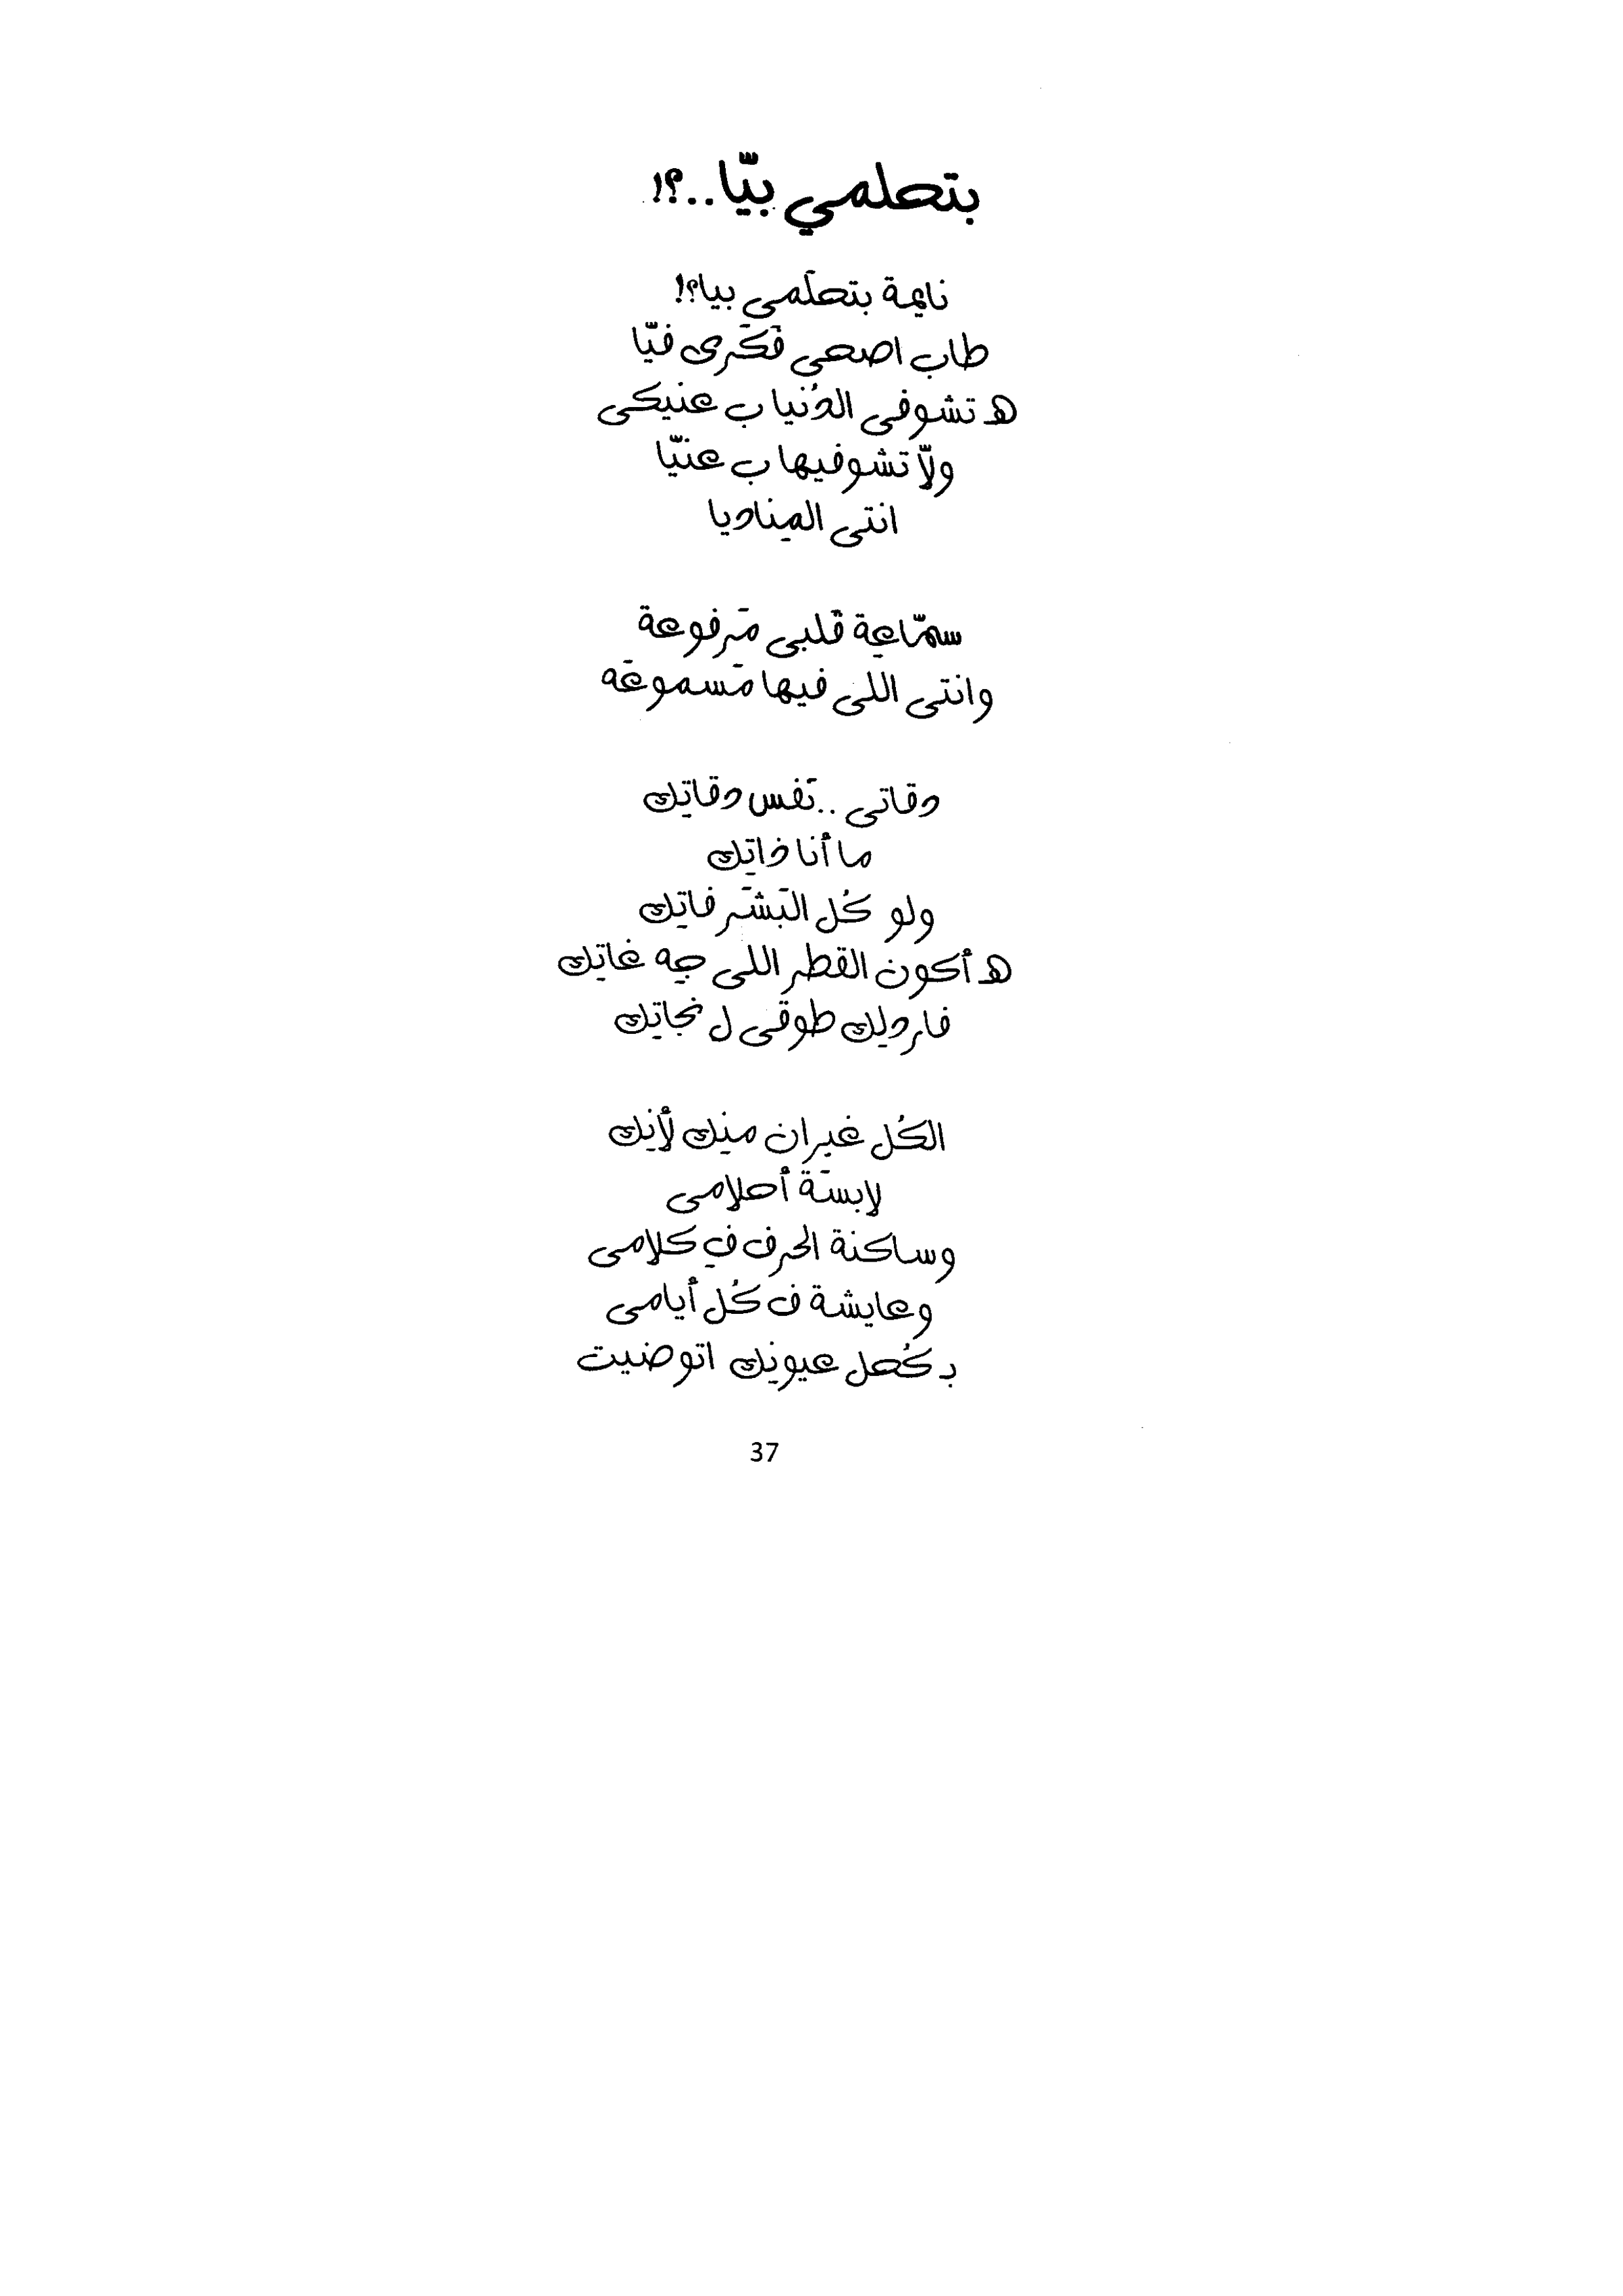 بتحلمي بيّا..؟!
نايمة بتحلَمى بيا؟!
طاب اصحى فَكَرى فيّا
هـ تشوفى الدُنيا ب عنيكى
ولاّ تشوفيها ب عنيّا
انتى المِناديا
سمّاعِة قَلبى مَرفوعة
وانتى اللى فيها مَسموعَه
دقاتى ..نَفس دقاتِك
ما أنا ذاتِك
ولو كُل البَشَر فاتِك
هـ أكون القطر اللى جِه غاتِك
فارديلك طوقى ل نجاتِك
الكُل غيران مِنِك لأنِك
لابسَة أحلامى
وساكنة الحرف فِ كلامى
وعايشة ف كُل أيامى
بـ كُحل عيونِك اتوضيت
37